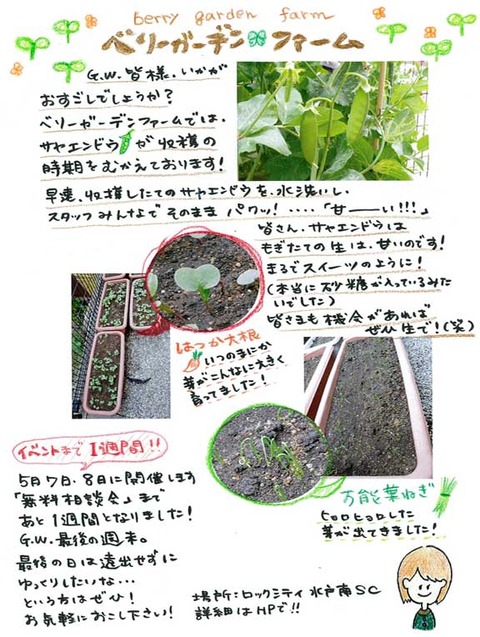 berry garden farm
ベリーガーデン ファーム
G.W. 皆様、いかが
おすごしでしょうか?
ベリーガーデンファームでは、
サヤエンドウが収穫の
時期をむかえております!
早速、収穫したてのサヤエンドウを、水洗いし、
スタッフみんなでそのままパクッ!‥‥「甘――い!!!」
皆さん、サヤエンドウは
もぎたての生は、甘いのです!
まるでスイーツのように!
(本当にお砂糖が入っているみた
いでした)
皆さまも機会があれば
ぜひ生で!(笑)
はつか大根
いつのまにか
芽がこんなに大きく
育ってました!
万能葉ねぎ
ヒョロヒョロした
芽が出てきました!
イベントまで1週間!!
5月7日、8日に開催します
「無料相談会」まで
あと1週間となりました!
G.W. 最後の週末。
最後の日は遠出せずに
ゆっくりしたいな…
という方はぜひ!
お気軽におこし下さい!
場所:ロックシティ水戸南SC
詳細はHPで!!